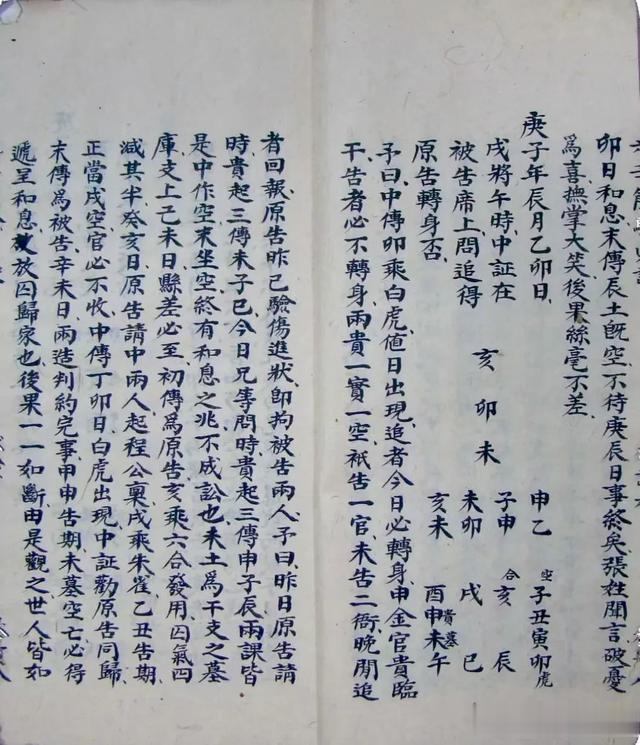 卯日和息末傳辰土既空不待庚辰日事終矣張姓聞言破憂
爲喜撫掌大笑後果絲毫不差
庚子年辰月乙卯日
戌將午時中証在
被告席上問追得
原告轉身否
亥卯未
申乙
子申
未卯
亥未
空子丑寅卯虎
合亥 辰
戌 巳
貴墓
酉申未午
予曰中傳卯乘白虎值日出現追者今日必轉身申金官貴臨
干告者必不轉身兩貴一實一空祇告一官未告二衙晚間追
者回報原告昨已驗傷進狀即拘被告兩人予曰昨日原告請
時貴起三傳未子巳今日兄等問時貴起三傳申子辰兩課皆
是中作空末坐空終有和息之兆不成訟也未土爲干支之墓
庫支上乙未日縣差必至初傳爲原告亥乘六合發用囚氣四
減其半癸亥日原告請中兩人起程公稟戌乘朱雀乙丑告期
正當戌空官必不收中傳丁卯日白虎出現中証勸原告同歸
末傳爲被告辛未日兩造判約完事甲申告期未墓空亡必得
遞呈和息放囚歸家也後果一一如斷由是觀之世人皆如